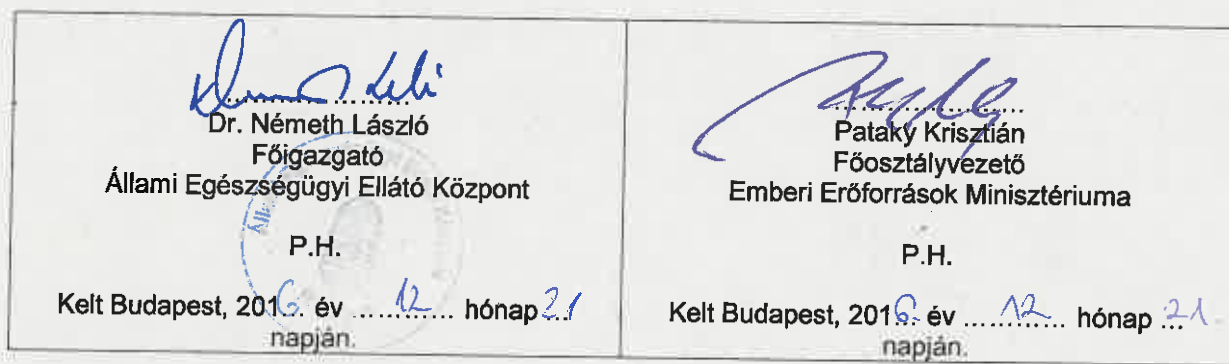 Dr. Németh László
Főigazgató
Állami Egészségügyi Ellátó Központ
P.H.
Kelt Budapest, 2016. év ....12.... hónap 21
napján.
Pataky Krisztián
Főosztályvezető
Emberi Erőforrások Minisztériuma
P.H.
Kelt Budapest, 2016. év ....12.... hónap ...21
napján.